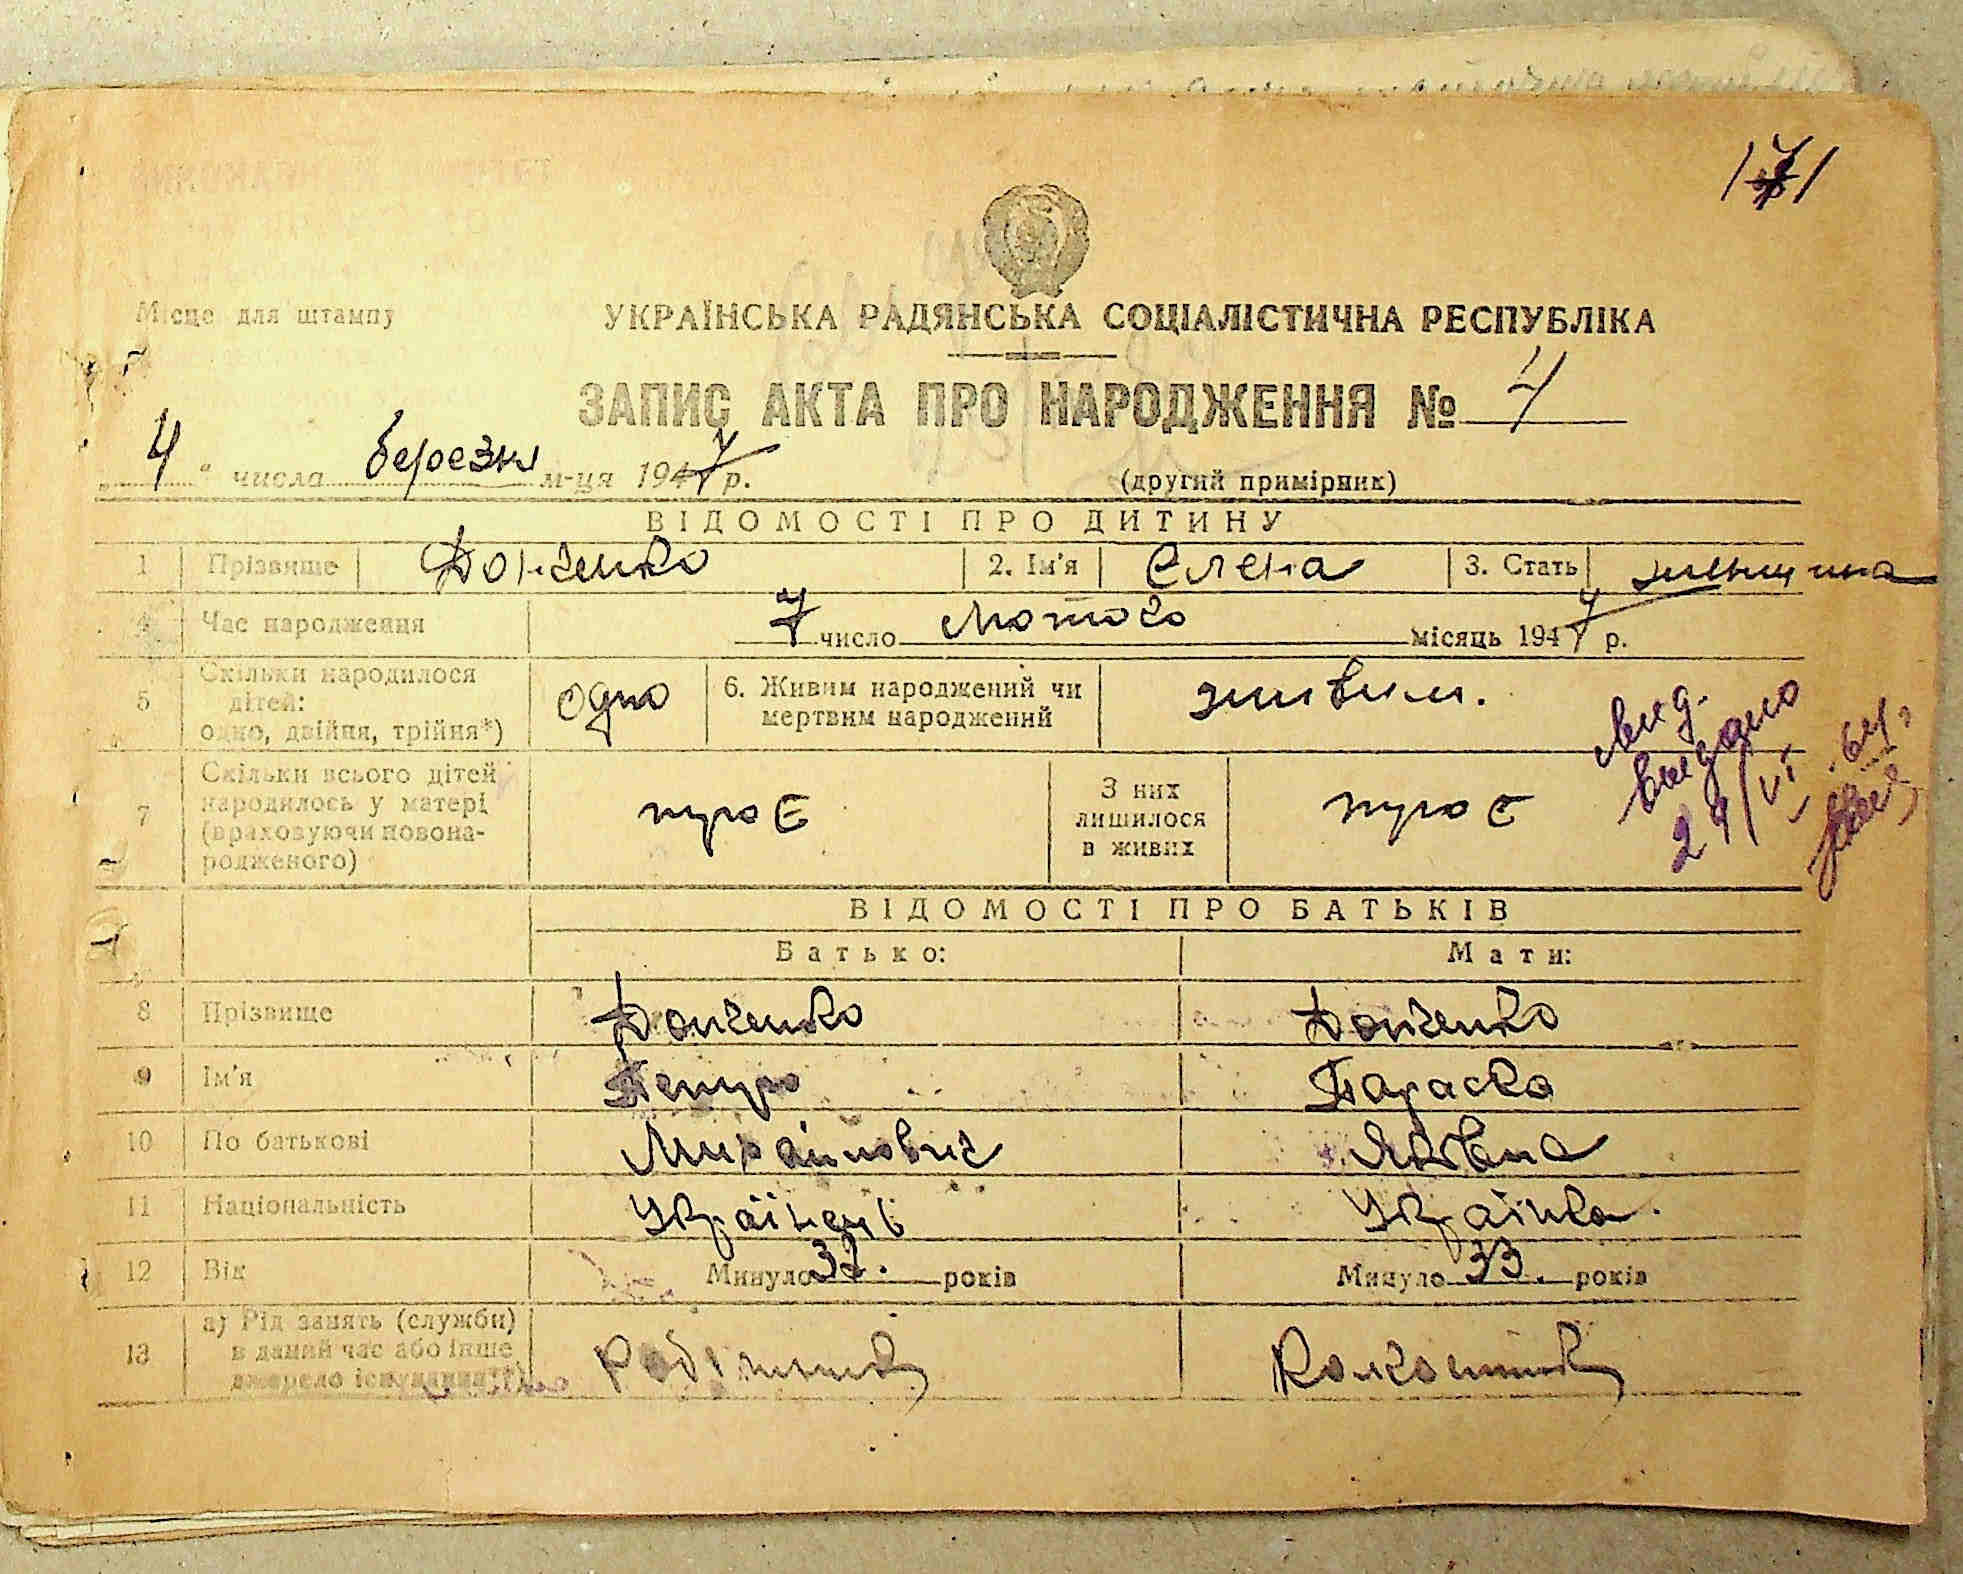 Місце для штампу
УКРАЇНСЬКА РАДЯНСЬКА СОЦІАЛІСТИЧНА РЕСПУБЛІКА
ЗАПИС АКТА ПРО НАРОДЖЕННЯ № 7
„ 4 “ числа березня м-ця 1947 р.
(другий примірник)
ВІДОМОСТІ ПРО ДИТИНУ
1 Прізвище Донченко 2. Ім'я Елена 3. Стать женщина
4 Час народження 7 число Лютого місяць 1947 р.
5 Скільки народилося дітей: одно, двійня, трійня*) одно 6. Живим народжений чи мертвим народжений живим.
7 Скільки всього дітей народилось у матері (враховуючи новонародженого) троє З них лишилося в живих троє
видано
ВІДОМОСТІ ПРО БАТЬКІВ
Батько: Мати:
8 Прізвище Донченко Донченко
9 Ім'я Петро Параска
10 По батькові Михайлович Яківна
11 Національність Українець Українка.
12 Вік Минуло 32. років Минуло 33. років
13 а) Рід занять (служби) в даний час або інше джерело існування**) Робітник Колгоспник